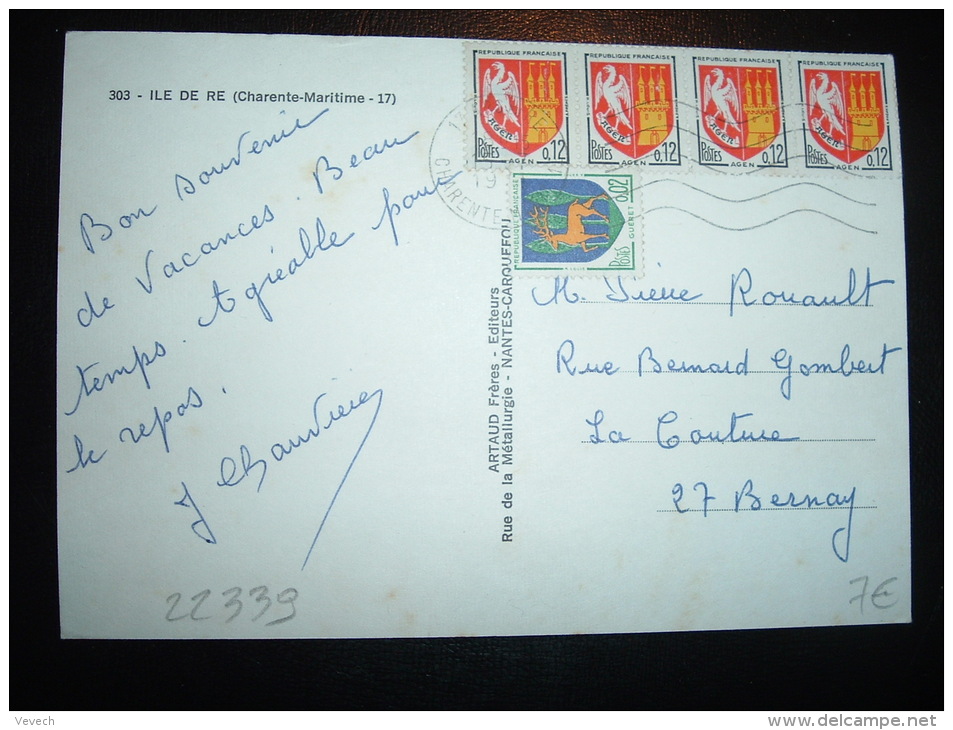 303 - ILE DE RE (Charente-Maritime - 17)
Bon souvenir
de Vacances. Beau
temps. Agréable pour
le repos.
REPUBLIQUE FRANÇAISE
AGEN
POSTES 0,12
AGEN
REPUBLIQUE FRANÇAISE
AGEN
POSTES 0,12
AGEN
REPUBLIQUE FRANÇAISE
AGEN
POSTES 0,12
AGEN
REPUBLIQUE FRANÇAISE
AGEN
POSTES 0,12
AGEN
CHARENTE
REPUBLIQUE FRANÇAISE
0,02
GUERET
POSTES
ARTAUD Frères - Editeurs
Rue de la Métallurgie - NANTES-CARQUEFOU
M. Pierre Rouault
Rue Bernard Gombert
La Couture
27 Bernay
22339
7€
Vevech
www.delcampe.net